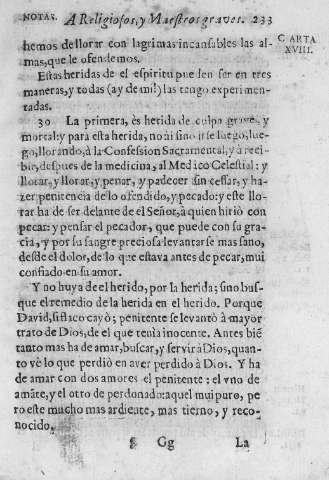 NOTAS. A Religiosos, y Maestros graves. 233
CARTA
XVIII.
hemos de llorar con lagrimas incansables las al-
mas, que le ofendemos.
Estas heridas de el espiritu pueden ser en tres
maneras, y todas (ay de mi!) las tengo experimen-
tadas.
30 La primera, es herida de culpa grave, y
mortal: y para esta herida, no ài sino irse luego, lue-
go, llorando, à la Confession Sacramental, y à reci-
birlo, despues de la medicina, al Medico Celestial: y
llorar, y llorar, y penar, y padecer sin cessar, y ha-
zer penitencia de lo ofendido, y pecado: y este llo-
rar ha de ser delante de el Señor, à quien hiriò con
pecar: y pensar el pecador, que puede con su gra-
cia, y por su sangre preciosa levantarse mas sano,
desde el dolor, de lo que estava antes de pecar, mui
confiado en su amor.
Y no huya de el herido, por la herida; sino bus-
que el remedio de la herida en el herido. Porque
David, si flaco cayò; penitente se levantò à mayor
trato de Dios, de el que tenia inocente. Antes biẽ
tanto mas ha de amar, buscar, y servir à Dios, quan-
to vè lo que perdiò en aver perdido à Dios. Y ha
de amar con dos amores el penitente: el vno de
amãte, y el otro de perdonado: aquel mui puro, pe-
ro este mucho mas ardiente, mas tierno, y reco-
nocido,
Gg La